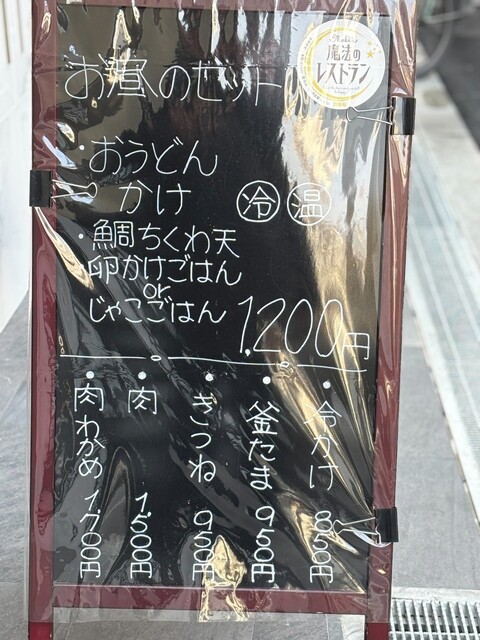 お昼のセット
魔法の
レストラン
・おうどん
かけ 冷 温
・鯛ちくわ天
卵かけごはん
or
じゃこごはん 1,200円
・冷かけ 850円
・釜たま 950円
・きつね 950円
・肉 1,500円
・肉わかめ 1,700円